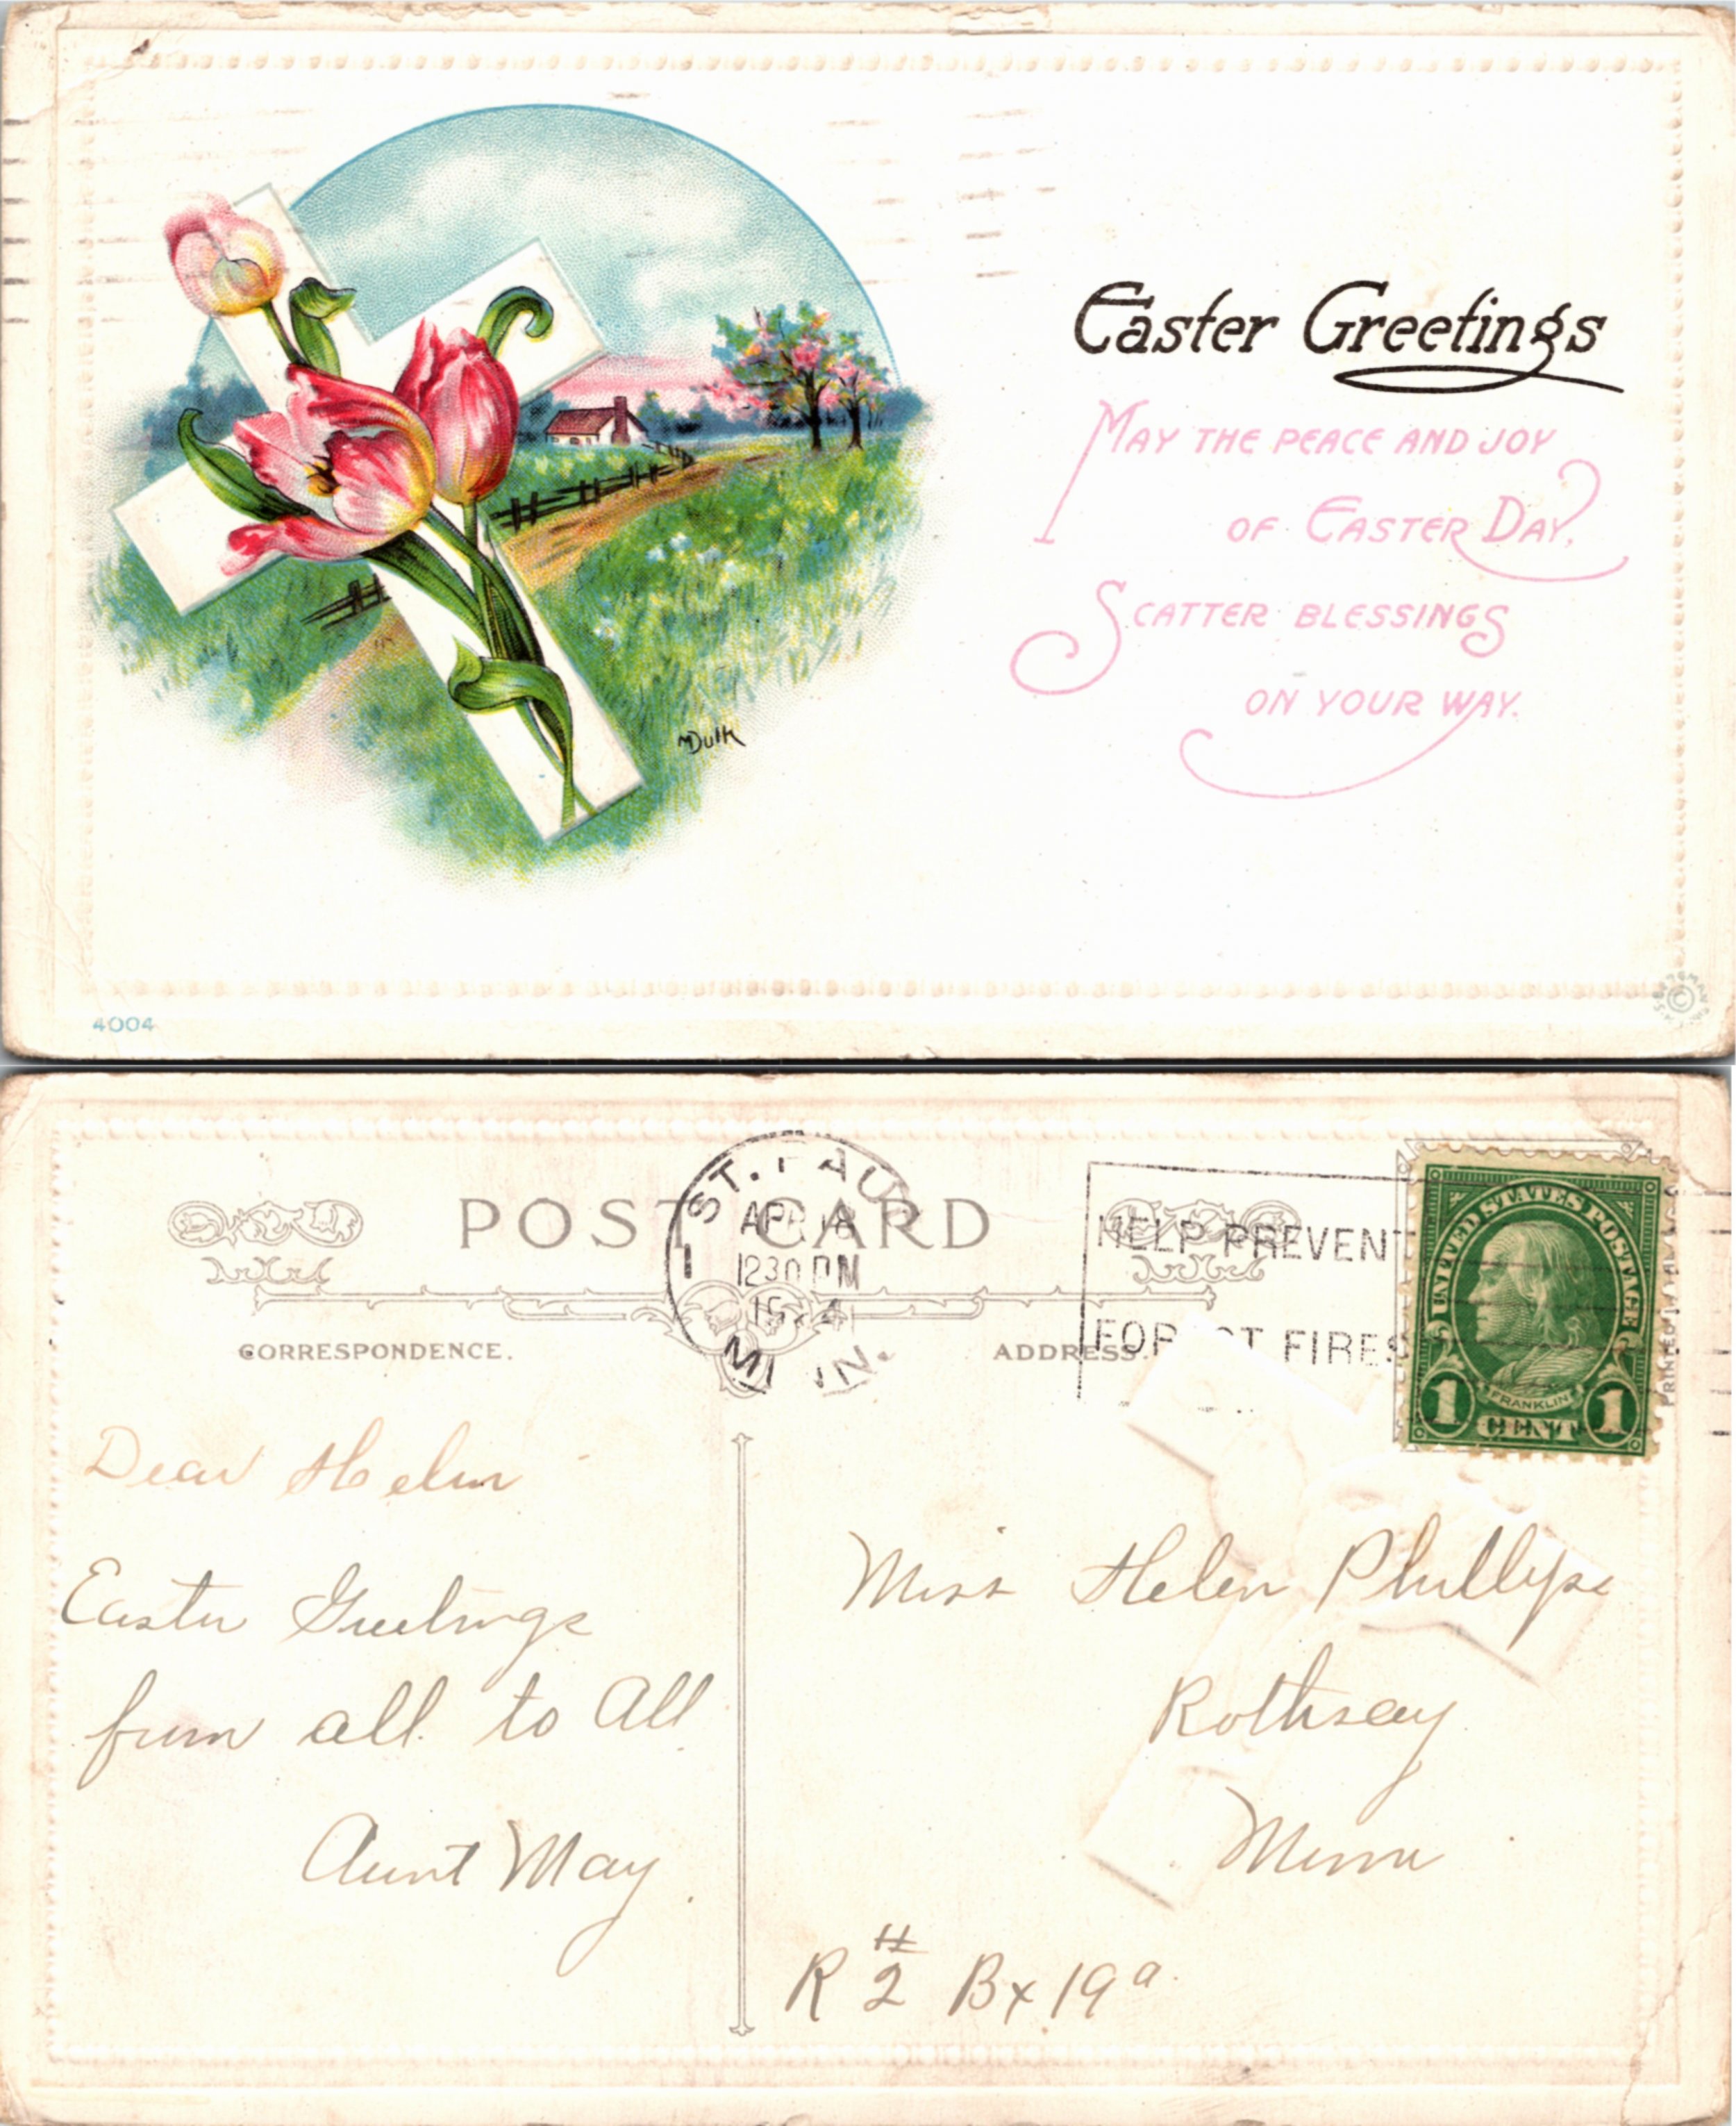 Easter Greetings
MAY THE PEACE AND JOY
OF EASTER DAY,
SCATTER BLESSINGS
ON YOUR WAY.
MDulk
4004
©
POST CARD
ST. PAUL
APR 18
1230 PM
1
MINN.
HELP PREVENT
FOREST FIRES
UNITED STATES POSTAGE
FRANKLIN
1 CENT 1
CORRESPONDENCE.
ADDRESS.
Dear Helen
Easter Greetings
from all to All
Aunt May.
Miss Helen Phillips
Rothsay
Minn
R #2 Bx 19a